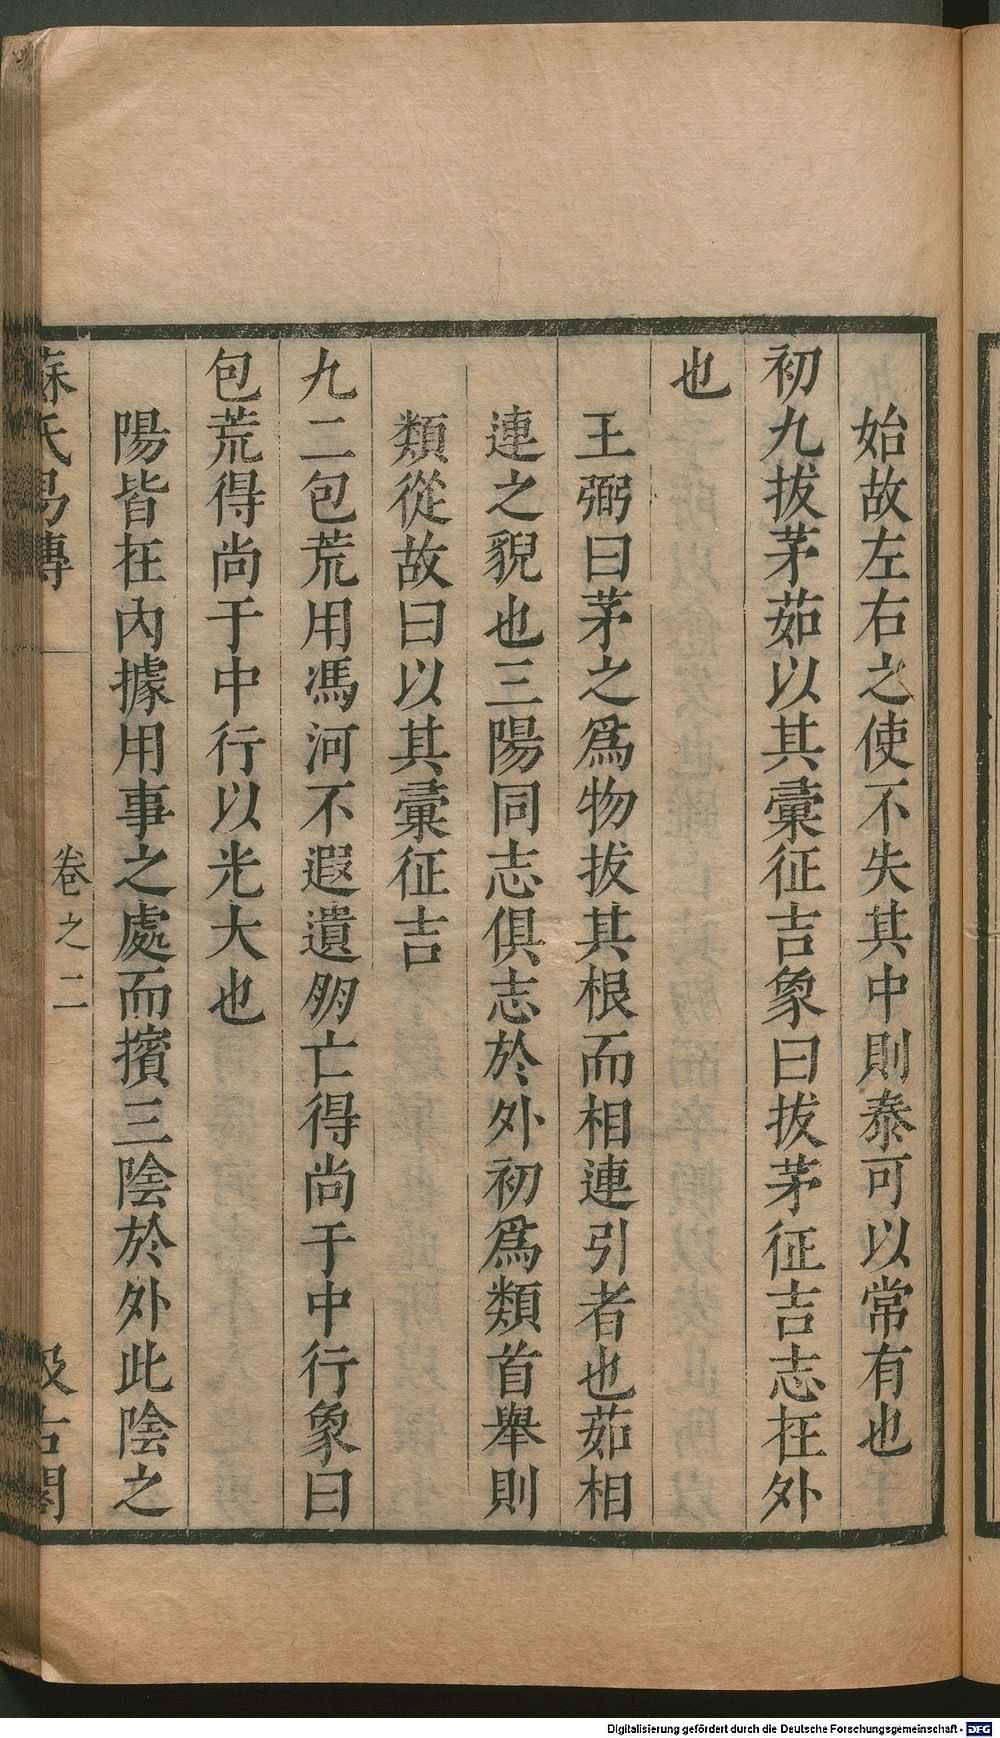 始故左右之使不失其中則泰可以常有也
初九拔茅茹以其彙征吉象曰拔茅征吉志在外
也
王弼曰茅之爲物拔其根而相連引者也茹相
連之貌也三陽同志俱志於外初爲類首舉則
類從故曰以其彙征吉
九二包荒用馮河不遐遺朋亡得尚于中行象曰
包荒得尚于中行以光大也
陽皆在內據用事之處而擯三陰於外此陰之
蘇氏易傳
卷之二
汲古閣
Digitalisierung gefördert durch die Deutsche Forschungsgemeinschaft - DFG